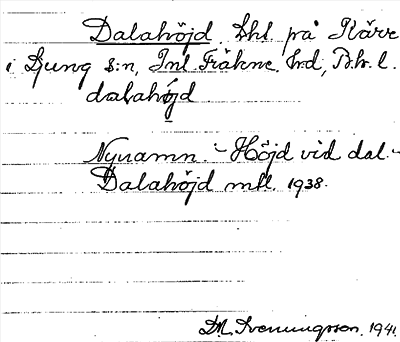 Dalahöjd Lhl. på Kärr
i Ljung s:n, Inl. Fräkne hd, B.h.l.
dalahöjd
Nynamn. - Höjd vid dal.-
Dalahöjd mtl. 1938.
M. Svenungsson. 1941